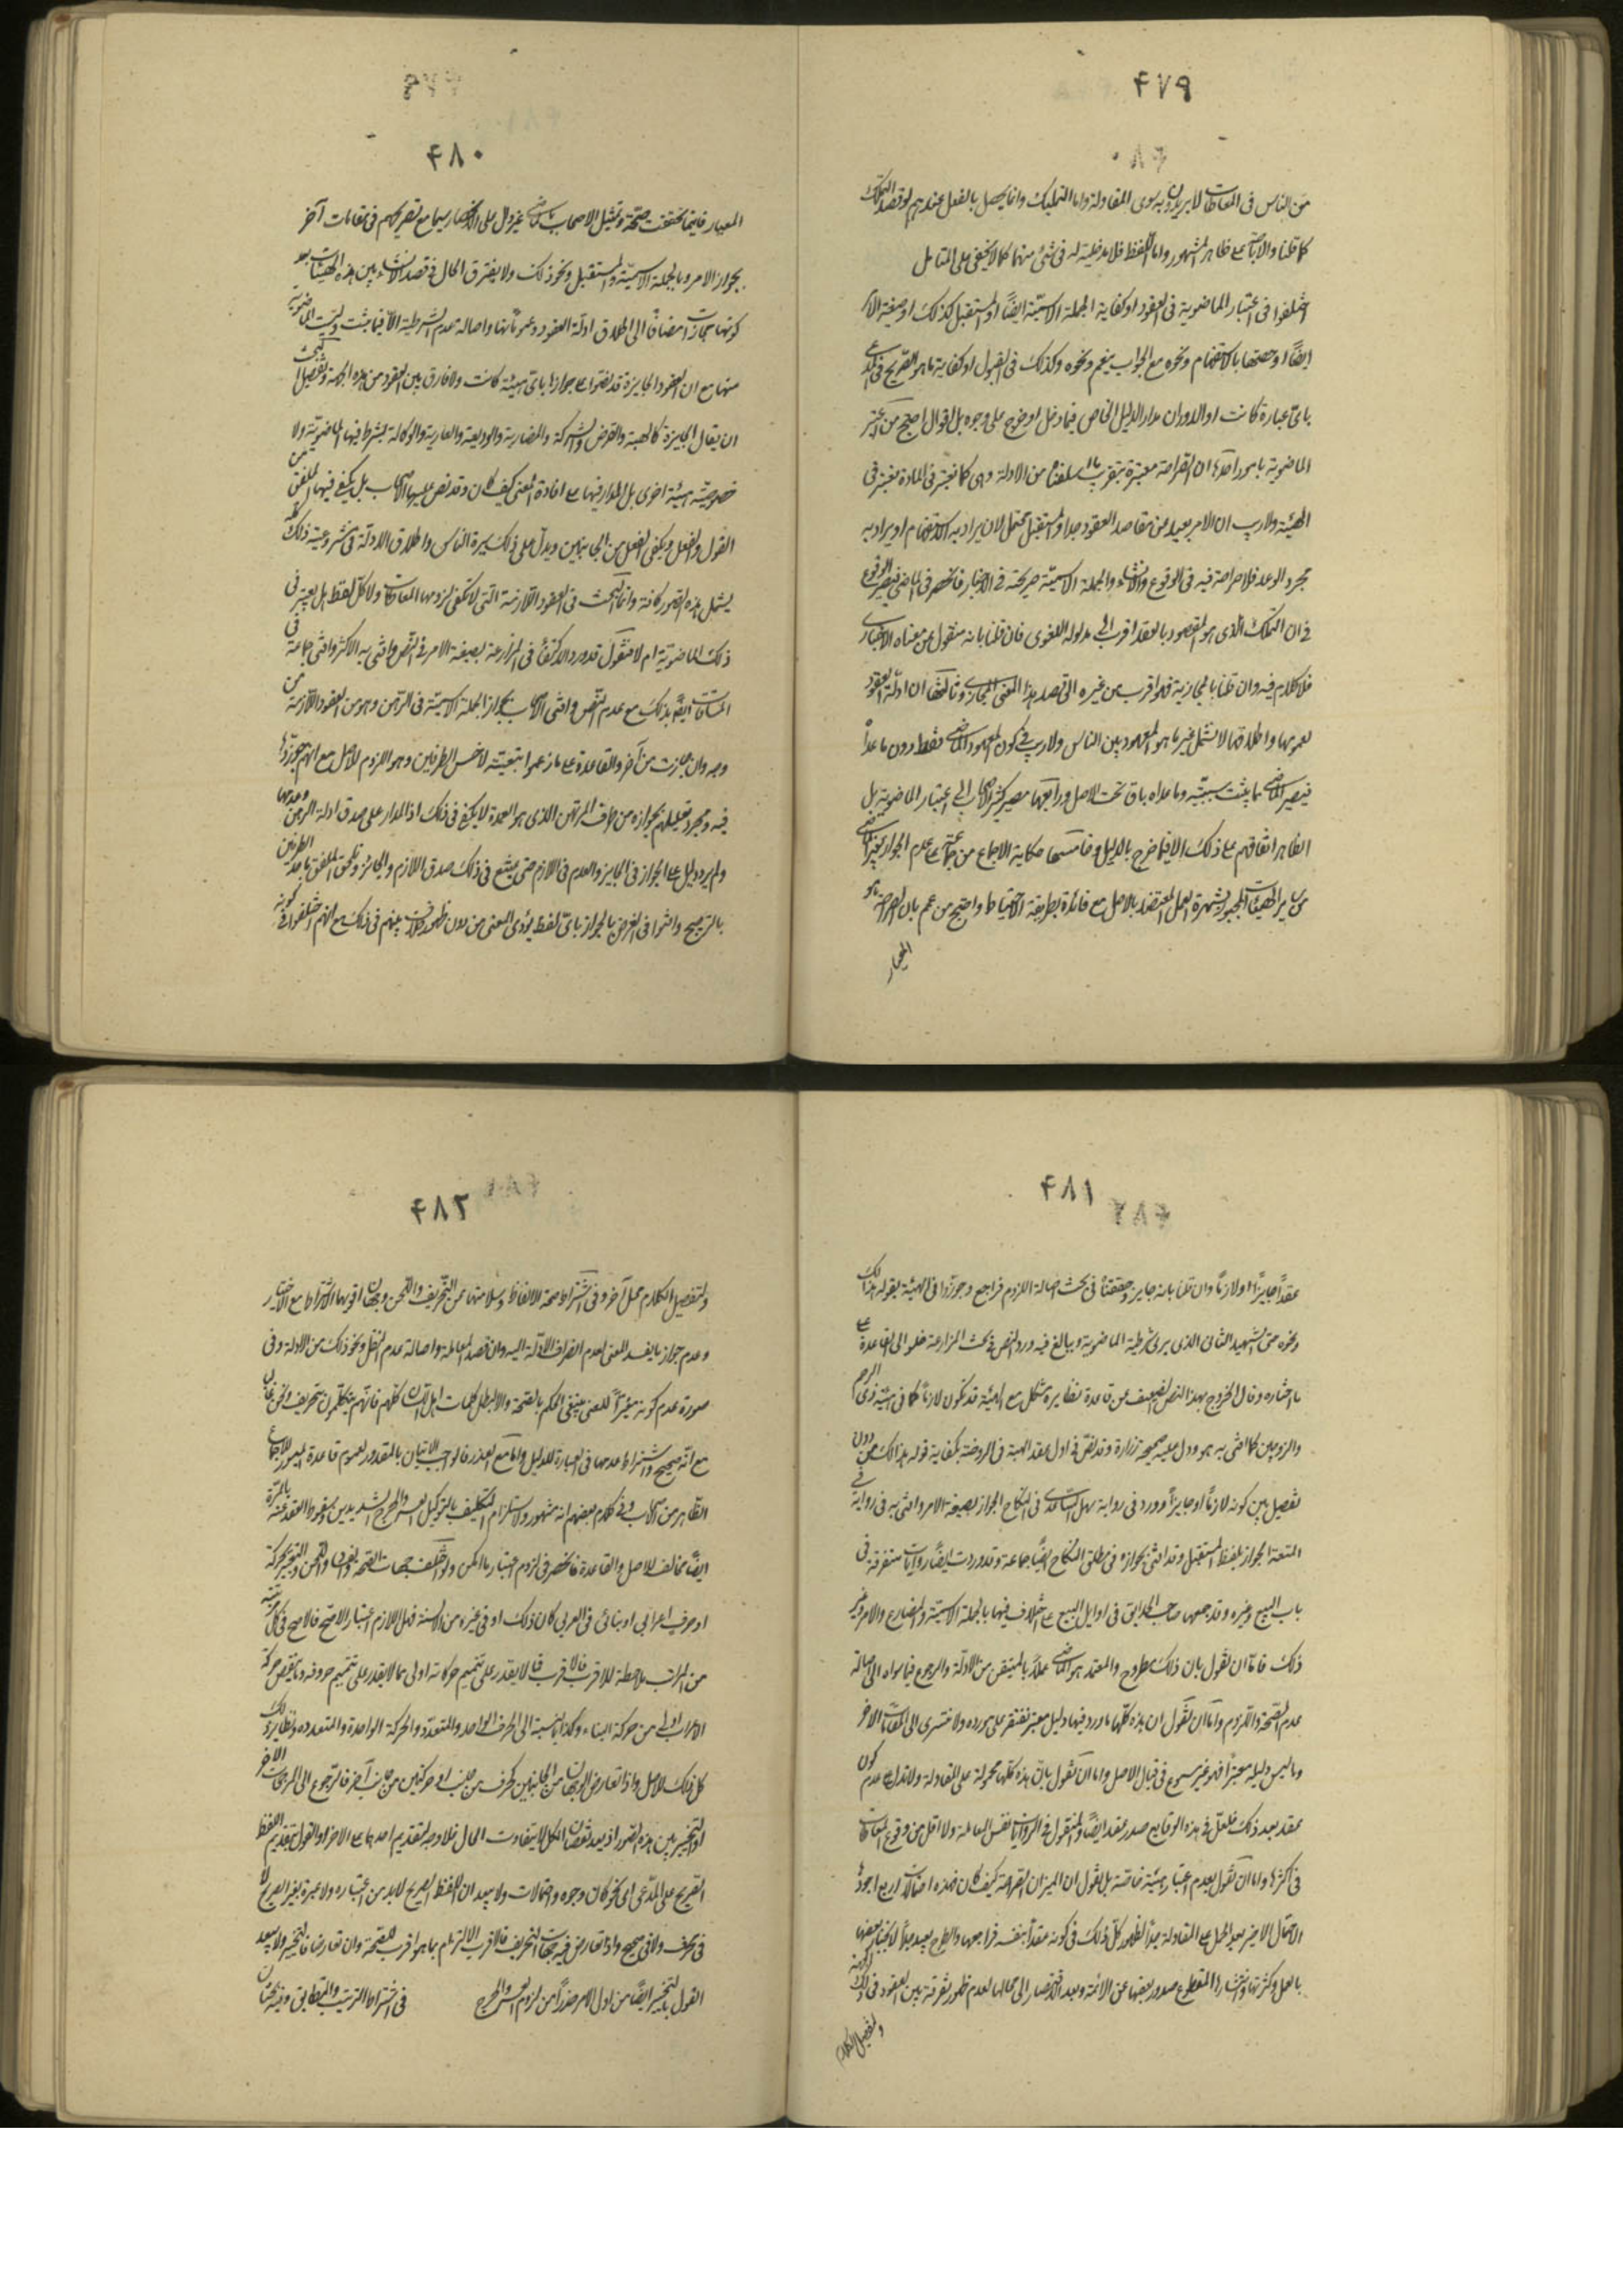 ۴۷۹
من الناس فی المعاطات لا یریدون به سوی المقاولة واما التملیک وانما یحصل بالفعل عندهم لو قصد التملک
کما قلنا والاباحة علی ظاهر المشهور واما اللفظ فلا مدخلیة له فی شئ منهما کما لا یخفی علی المتامل
اختلفوا فی اعتبار الماضویة فی العقود او کفایة الجملة الاسمیة ایضاً او المستقبل کذلک او صیغة الامر
ایضاً او صحتها بالاستفهام ونحوه مع الجواب بنعم ونحوه وکذلک فی القبول او کفایة ما هو الصریح فی المدعی
بای عبارة کانت او الدوران مدار الدلیل الخاص فیما دخل او خرج علی وجوه بل اقوال احتج من یعتبر
الماضویة بامور احدها ان الصراحة معتبرة بتقریب ما اسلفناه من الادلة وهی کما تعتبر فی المادة تعتبر فی
الهیئة ولا ریب ان الامر بعید من مقاصد العقود جدا والمستقبل محتمل لان یراد به الاستفهام او یراد به
مجرد الوعد فلا صراحة فیه فی الوقوع والانشاء والجملة الاسمیة صریحة فی الاخبار فانحصر فی الماضی فیصیر الوقوع
فی ان التملک الذی هو المقصود بالعقد اقرب الی مدلوله اللغوی فان قلنا بانه منقول عن معناه الاخباری
فلا کلام فیه وان قلنا بالمجازیة فهو اقرب من غیره الی قصد هذا المعنی المجازی وثالثها ان ادلة العقود
بعمومها واطلاقها لا تشمل غیر ما هو المعهود بین الناس ولا ریب فی کون المعهود الماضی فقط دون ما عداه
فیصیر الماضی مما یثبت سببیته وما عداه باق تحت الاصل ورابعها مصیر کثیر من الاصحاب الی اعتبار الماضویة بل
الظاهر اتفاقهم علی ذلک الا فیما خرج بالدلیل وخامسها حکایة الاجماع من جماعة علی عدم الجواز بغیر الماضی
من سایر الهیئات المجبور بشهرة العمل المعتضد بالاصل مع فائدة بطریقة الاحتیاط واحتج من عمم بان الصراحة هو
المعیار
۴۸۰
المعیار فاینما تحققت صحت وتمثیل الاصحاب بالماضی غیر دال علی الانحصار سیما مع تصریحهم فی مقامات آخر
بجواز الامر وبالجملة الاسمیة والمستقبل ونحو ذلک ولا یفترق الحال فی قصد الانشاء بین هذه الهیئات بعد
کونها مجازات مضافاً الی اطلاق ادلة العقود وعموماتها واصالة عدم الشرطیة الا فیما یثبت ولیست الماضویة
منها مع ان العقود الجایزة قد نصوا علی جوازها بای هیئة کانت ولا فارق بین العقود من هذه الجهة وتفصیل البحث
ان یقال الجایزة کالهبة والقرض والشرکة والمضاربة والودیعة والعاریة والوکالة لا یشترط فیها الماضویة ولا
خصوصیة هیئة اخری بل المدار فیها علی افادة المعنی کیف کان وقد نص علیها الاصحاب بل یکفی فیها الملفق من
القول والفعل ویکفی الفعل من الجانبین ویدل علی ذلک سیرة الناس واطلاق الادلة فی مشروعیة ذلک کله
یشمل هذه الصور کافة وانما البحث فی العقود اللازمة التی لا تکفی لزومها المعاطات ولا کل لفظ هل یعتبر فی
ذلک الماضویة ام لا فنقول قد ورد الاکتفاء فی المزارعة بصیغة الامر فی النص وافتی به الاکثر وافتی جماعة فی
المساقات ایضاً بذلک مع عدم النص وافتی الاصحاب بجواز الجملة الاسمیة فی الرهن وهو من العقود اللازمة من
وجه وان جازت من آخر والقاعدة علی ما زعموا تبعیته لاخس الطرفین وهو اللزوم للاصل مع انهم جوزوا
فیه ومجرد تعلیلهم بجوازه من طرف المرتهن الذی هو العمدة لا یکفی فی ذلک اذ المدار علی صدق ادلة الرهن وعدمها
ولم یرد دلیل علی الجواز فی الجایز والعدم فی اللازم حتی یتبع فی ذلک صدق اللازم والجائز ویلحق الملفق باحد الطرفین
بالترجیح وافتوا فی القرض بالجواز بای لفظ یؤدی المعنی من دون ظهور خلاف بینهم فی ذلک مع انهم اختلفوا فی کونه
۴۸۱
عقداً جایزاً او لازماً وان قلنا بانه جایز وحققناه فی بحث اصالة اللزوم فراجع وجوزوا فی الهبة بقوله هذا لک
ونحوه حتی الشهید الثانی الذی یری شرطیة الماضویة ویبالغ فیه ورد النص فی بحث المزارعة خلو الی القاعدة علی
ما اختاره وقال الخروج بهذا النص الضعیف عن قاعدة نظایره مشکل مع ان الهبة قد تکون لازماً کما فی هبة ذی الرحم
والزوجین کما افتی به هو ودل علیه صحیحة زرارة وقد نص فی اول عقد الهبة فی الروضة بکفایة قوله هذا لک من دون
تفصیل بین کونه لازماً او جایزاً وورد فی روایة سهل الساعدی فی النکاح الجواز بصیغة الامر وافتی به فی روایة فی
المتعة الجواز بلفظ المستقبل وقد افتی بجوازه فی مطلق النکاح ایضاً جماعة وقد وردت ایضاً روایات متفرقة فی
باب البیع وغیره وقد جمعها صاحب الحدایق فی اوایل البیع علی اختلاف فیها بالجملة الاسمیة والمضارع والامر وغیر
ذلک فاما ان نقول بان ذلک مطروح والمعتمد هو الماضی عملاً بالمتیقن من الادلة والرجوع فیما سواه الی اصالة
عدم الصحة واللزوم واما ان نقول ان هذه کلها ما ورد فیها دلیل معتبر نقتصر علی مورده ولا نتسری الی المقامات الاخر
وما لیس دلیله معتبراً فهو غیر مسموع فی قبال الاصل واما ان نقول بان هذه کلها محمولة علی المقاولة ولا تدل علی عدم کون
عقد بعد ذلک فلعل فی هذه الوقایع صدر عقد ایضاً والمنقول فی الروایات نفس المعاملة ولا اقل من وقوع المعاطات
فی اکثرها واما ان نقول بعدم اعتبار هیئة خاصة بل نقول ان المیزان الصراحة کیف کان فهذه احتمالات اربع اجودها
الاحتمال الاخیر لبعد الحمل علی المقاولة جداً لظهور کل ذلک فی کونه عقداً بنفسه فراجعها والطرح بعید جداً لانجبار بعضها
بالعمل وکثرتها وانتشارها المقطوع صدور بعضها عن الائمة وبعد الاقتصار الی محالها لعدم ظهور تفرقة بین العقود فی ذلک
وتفصیل الکلام
۴۸۲
وتفصیل الکلام محل آخر وفی اشتراط صحة الالفاظ وسلامتها عن التحریف واللحن وجهان اقویهما الاشتراط مع الاختیار
وعدم جواز ما یفسد المعنی لعدم انصراف الادلة الیه وان قصد المعاملة واصالة عدم النقل ونحو ذلک من الادلة وفی
صورة عدم کونه مغیّراً للمعنی ینبغی الحکم بالصحة والا لبطل کلمات اهل اللسان کلهم فانهم یتکلمون بتحریف ولحن غالبا
مع انه صحیح واشتراط عدمها فی العبارة للدلیل واما مع العذر فالواجب الاتیان بالمقدور لعموم قاعدة المیسور للاجماع
الظاهر من الاصحاب وفی کلام بعضهم انه مشهور ولاستلزام التکلیف بالتوکیل العسر والحرج الشدیدین وسقوط العقد عنه بالمرة
ایضاً مخالف للاصل والقاعدة فانحصر فی لزوم اعتبار ما امکن ولو اختلف جهات الصحة والنقصان واللحن والتغیّر بحرکة
او حرف اعرابی او بنائی فی العربی کان ذلک او فی غیره من السنة فهل اللازم اعتبار الاصح فالاصح فی کل مرتبة
من المراتب ملاحظة للاقرب فالاقرب فما لا یقدر علی تتمیم حرکاته اولی مما لا یقدر علی تتمیم حروفه وما نقص حرکة
الاعراب اولی من حرکة البناء وکذا بالنسبة الی الحرف الواحد والمتعدد والحرکة الواحدة والمتعددة ونظایر ذلک
کل ذلک للاصل واذا تعارض الوجهان من الجانبین کحرف من جانب او حرکتین من جانب آخر فالرجوع الی المرجحات الاخر
او التخییر بین هذه الصور اذ بعد نقصان الکل لا یتفاوت الحال فلا وجه لتقدیم احدهما علی الاخر او القول بتقدیم اللفظ
الصریح علی المدعی ای نحو کان وجوه واحتمالات ولا یبعد ان اللفظ الصریح لا بد من اعتباره ولا عبرة بغیر الصریح لا
فی محرف ولا فی صحیح واذا تعارض فیه جهات التحریف فالاقرب الالتزام بما هو اقرب للصحة وان تعارضا فالتخییر ولا یبعد
القول بالتخییر ایضاً من اول الامر حذراً من لزوم العسر والحرج فی اشتراط الترتیب والتطابق وفیه بحثان